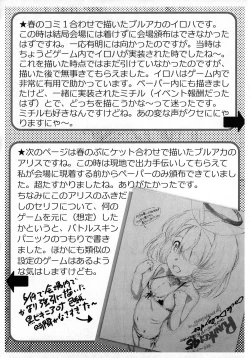 ★春のコミ1合わせで描いたブルアカのイロハです。
この時は結局会場には着けずに会場頒布はできなかった
はずですね。一応有明には向かったのですが。当時は
ちょうどゲーム内でイロハが実装された時でしたね～。
これを描いた時点ではまだ引けていなかったのですが、
描いた後で無事きてもらえました。イロハはゲーム内で
非常に有用で助かっています。ペーパー内にも描きました
けど、一緒に実装されたミチル（イベント報酬だった
はず）とで、どっちを描こうかな～って迷ったです。
ミチルも好きなんですけどね。あの変な声がクセににゃ
りますにゃ～。
★次のページは春のぷにケット合わせで描いたブルアカの
アリスですね。この時は現地で出力手伝いしてもらえて
私が会場に現着する前からペーパーのみ頒布できていまし
た。超たすかりましたね。ありがたかったです。
ちなみにこのアリスのふきだ
しのセリフについて、何の
ゲームを元に（想定）した
かというと、バトルスキン
パニックのつもりで書きま
した。ほかにも類似の
設定のゲームはあるような
気はしますけども。